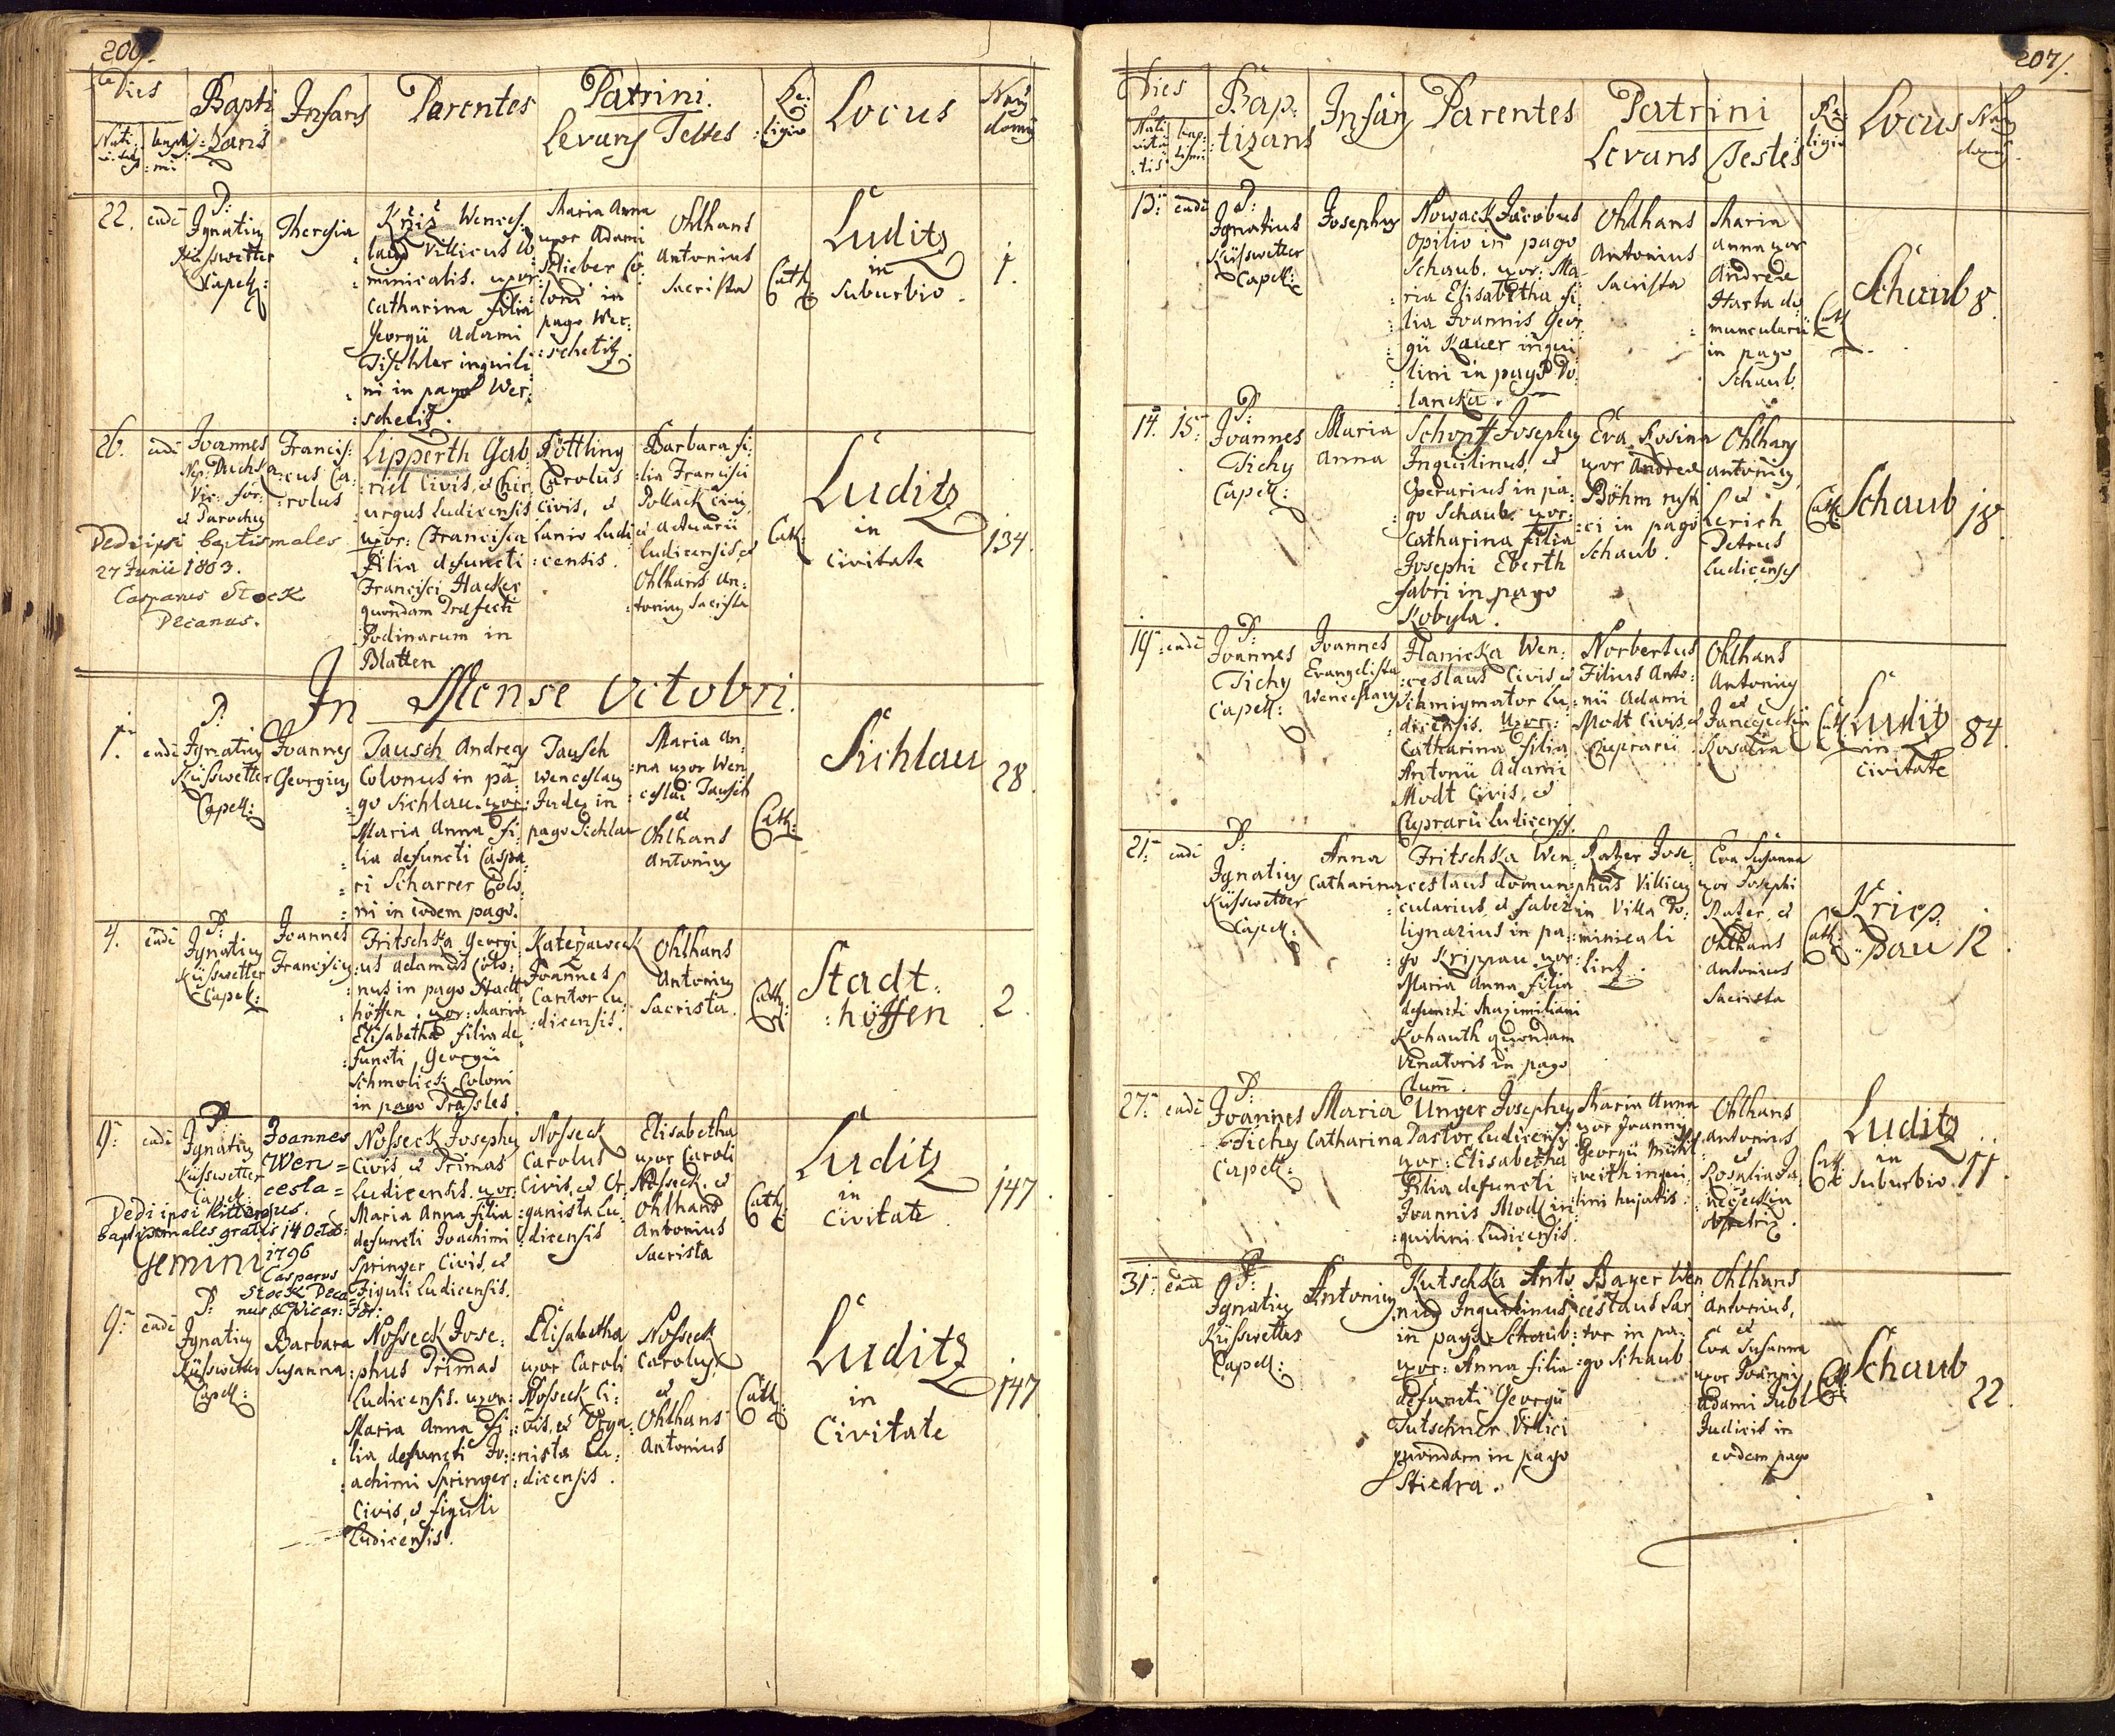 206.
Dies
Bapti
Infans
Parentes
Patrini.
Re:
Locus
Nati:
:zans
Levans Testes
:ligio
22.
eadē
P:
Ignatius
Küsswetter
Capell:
Theresia
Křiž Wences:
:laus Villicus do
:minicalis. uxor:
Catharina filia
Georgii Adami
Tischler inquili:
:ni in pago Wer:
:schetitz.
Maria Anna
uxor Adami
Klieber Co:
:loni in
pago Wer:
:schetitz.
Ohlhans
Antonius
Sacrista
Cath:
Luditz
in
Suburbio.
1.
26.
eadē
Joannes
Nep: Duchsa
Vic: for:
et Parochus
Francis:
:cus Ca:
:rolus
Dedi ipsi baptismales
27 Junii 1803.
Casparus Stock
Decanus.
Lipperth Gab
:riel Civis, et Chir
:urgus Ludicensis
uxor: Francisca
Filia defuncti
Francisci Hacker
quondam Præfecti
Fodinarum in
Blatten.
Pöttling
Carolus
Civis, et
Lanio Ludi
:censis.
Barbara fi:
:lia Francisci
Pollack Civis
et Actuarii
Ludicensis, et
Ohlhans An:
:tonius Sacrista
Cath:
Luditz
in
Civitate
134.
In Mense Octobri.
1.
eadē
P:
Ignatius
Küsswetter
Capell:
Joannes
Georgius
Tausch Andreas
Colonus in pa:
:go Sichlau. uxor:
Maria Anna fi:
:lia defuncti Caspa:
:ri Scharrer Colo:
:ni in eodem pago.
Tausch
Wenceslaus
Judex in
pago Sichlau
Maria An:
:na uxor Wen
:ceslai Tausch
et
Ohlhans
Antonius
Cath:
Sichlau
28.
4.
eadē
P:
Ignatius
Küsswetter
Capell:
Joannes
Franciscus
Fritschka Georgi
:us Adamus Colo:
:nus in pago Stadt
:höffen. uxor: Maria
Elisabetha filia de
:functi Georgii
Schmolick Coloni
in pago Prassles.
Kateržaweck
Joannes
Cantor Lu:
:dicensis.
Ohlhans
Antonius
Sacrista.
Cath:
Stadt:
:höffen
2.
9.
eadē
P:
Ignatius
Küsswetter
Capell:
Joannes
Wen=
cesla=
us.
Dedi ipsi litteras
baptismales gratis 14 Octob:
1796
Casparus
Stock Deca=
nus, & Vicar: For:
Gemini
Nosseck Josephus
Civis et Primas
Ludicensis. uxor:
Maria Anna filia
defuncti Joachimi
Springer Civis, et
Figuli Ludicensis.
Nosseck
Carolus
Civis, et Or
:ganista Lu:
:dicensis
Elisabetha
uxor Caroli
Nosseck. et
Ohlhans
Antonius
Sacrista
Cath:
Luditz
in
Civitate
147.
9.
eadē
P:
Ignatius
Küsswetter
Capell:
Barbara
Susanna
Nosseck Jose:
:phus Primas
Ludicensis. uxor:
Maria Anna fi:
:lia defuncti Jo:
:achimi Springer
Civis, et figuli
Ludicensis.
Elisabetha
uxor Caroli
Nosseck Ci:
:vis, et Orga:
:nista Lu:
:dicensis.
Nosseck
Carolus
et
Ohlhans
Antonius
Cath:
Luditz
in
Civitate
147.
207.
Dies
Bap:
Infans
Parentes
Patrini
Re:
Locus
Nati
:tizans
Levans
Testes
:ligio
13.
eadē
P:
Ignatius
Küsswetter
Capell:
Josephus
Nowack Jacobus
Opilio in pago
Schaub. uxor: Ma:
:ria Elisabetha fi:
:lia Joannis Geor
:gii Kauer inqui
:lini in pago Do:
:lancka.
Ohlhans
Antonius
Sacrista
Maria
Anna uxor
Andreæ
Harta do:
:muncularii
in pago
Schaub.
Cath:
Schaub
8.
14.
15.
P:
Joannes
Tichy
Capell:
Maria
Anna
Schopf Josephus
Inquilinus, et
Operarius in pa:
:go Schaub. uxor:
Catharina filia
Josephi Eberth
fabri in pago
Kobyla.
Eva Rosina
uxor Andreæ
Böhm rusti
:ci in pago
Schaub.
Ohlhans
Antonius,
et
Lerich
Petrus
Ludicensis
Cath:
Schaub
18.
19.
eadē
P:
Joannes
Tichy
Capell:
Joannes
Evangelista
Wenceslaus
Hanicka Wen:
:ceslaus Civis, et
Schmigmator Lu:
:dicensis. Uxor:
Catharina filia
Antonii Adami
Modt Civis, et
Cuprarii Ludicensis.
Norbertus
Filius Anto:
:nii Adami
Modt Civis, et
Cuprarii
Ohlhans
Antonius
et
Rosalia
Cath:
Luditz
in
Civitate
84.
21.
eadē
P:
Ignatius
Küsswetter
Capell:
Anna
Catharina
Fritschka Wen:
:ceslaus domun
:cularius, et faber
lignarius in pa:
:go Krippau. uxor:
Maria Anna filia
defuncti Maximiliani
Kohauth quondam
Venatoris in pago
Clum̄.
Ratzer Jose:
:phus Villicus
in Villa Do:
:minicali
Eva Susanna
uxor Josephi
Ratzer, et
Ohlhans
Antonius
Sacrista
Cath:
Kriep:
:pau
12.
27.
eadē
P:
Joannes
Tichy
Capell:
Maria
Catharina
Unger Josephus
Pastor Ludicensis
uxor: Elisabetha
Filia defuncti
Joannis Modl in:
:quilini Ludicensis.
Maria Anna
uxor Joannis
Georgii Mühl:
:veith inqui:
:lini hujatis.
Ohlhans
Antonius
et
Rosalia Ja:
:neczeckin
obstetrix.
Cath:
Luditz
in
Suburbio.
11.
31.
eadē
P:
Ignatius
Küsswetter
Capell:
Antonius
Kutschka Anto
:nius Inquilinus
in pago Schaub
uxor: Anna filia
defuncti Georgii
Tutschner Villici
quondam in pago
Stiedra.
Bayer Wen
:ceslaus Sar
:tor in pa:
:go Schaub
Ohlhans
Antonius,
et
Eva Susanna
uxor Joannis
Adami Jubl
Judicis in
eodem pago
Cath:
Schaub
22.